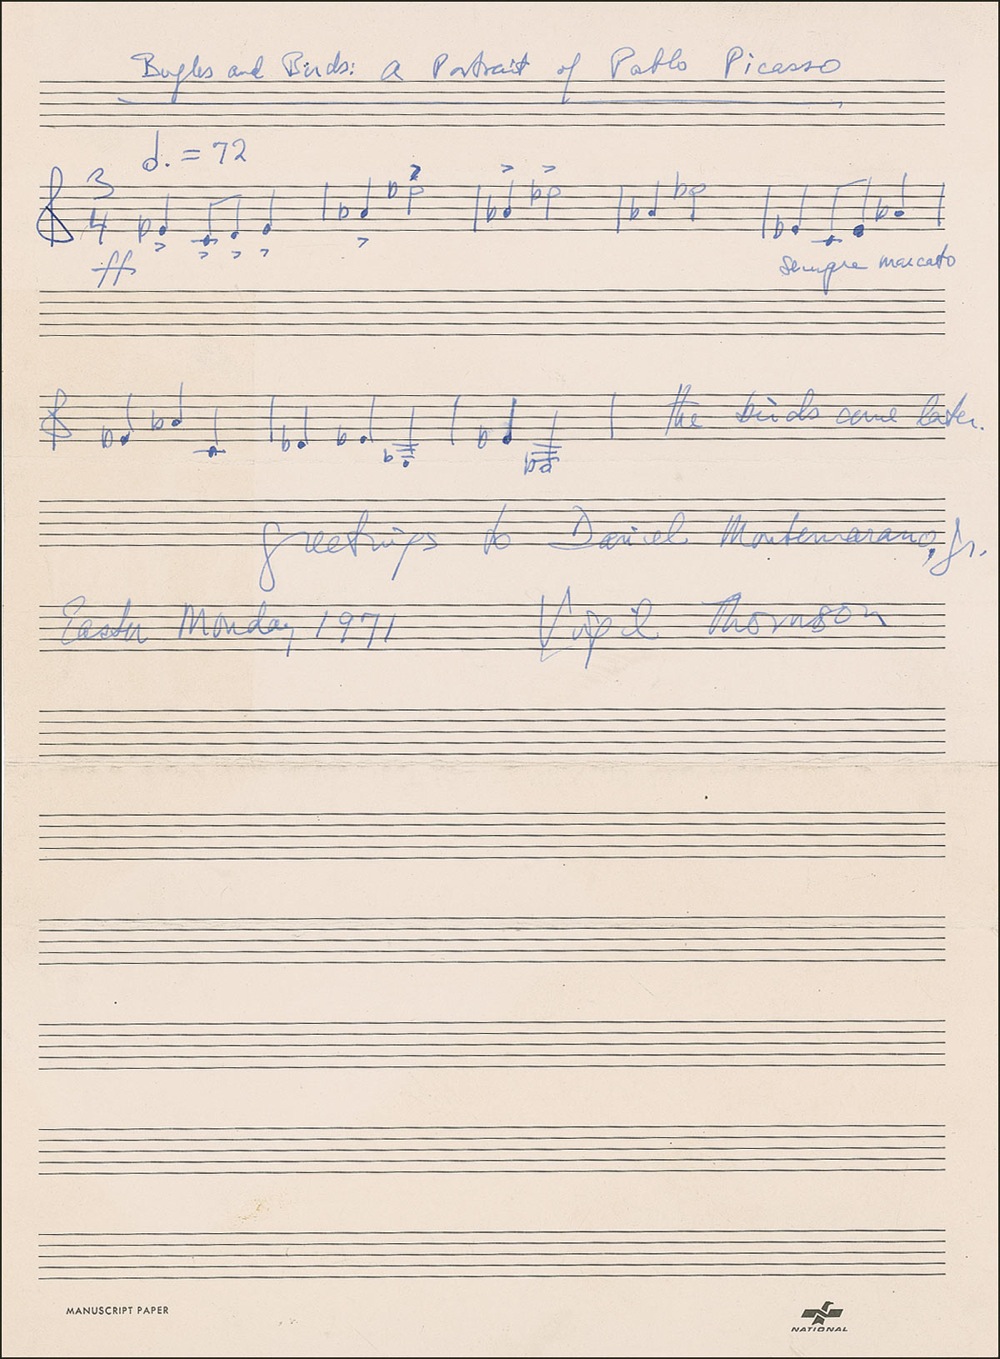 Bugles and Birds: A Portrait of Pablo Picasso
= 72
3
4
ff
sempre marcato
the birds come later.
greetings to Daniel Montemarano, Jr.
Easter Monday 1971 Virgil Thomson
MANUSCRIPT PAPER
NATIONAL